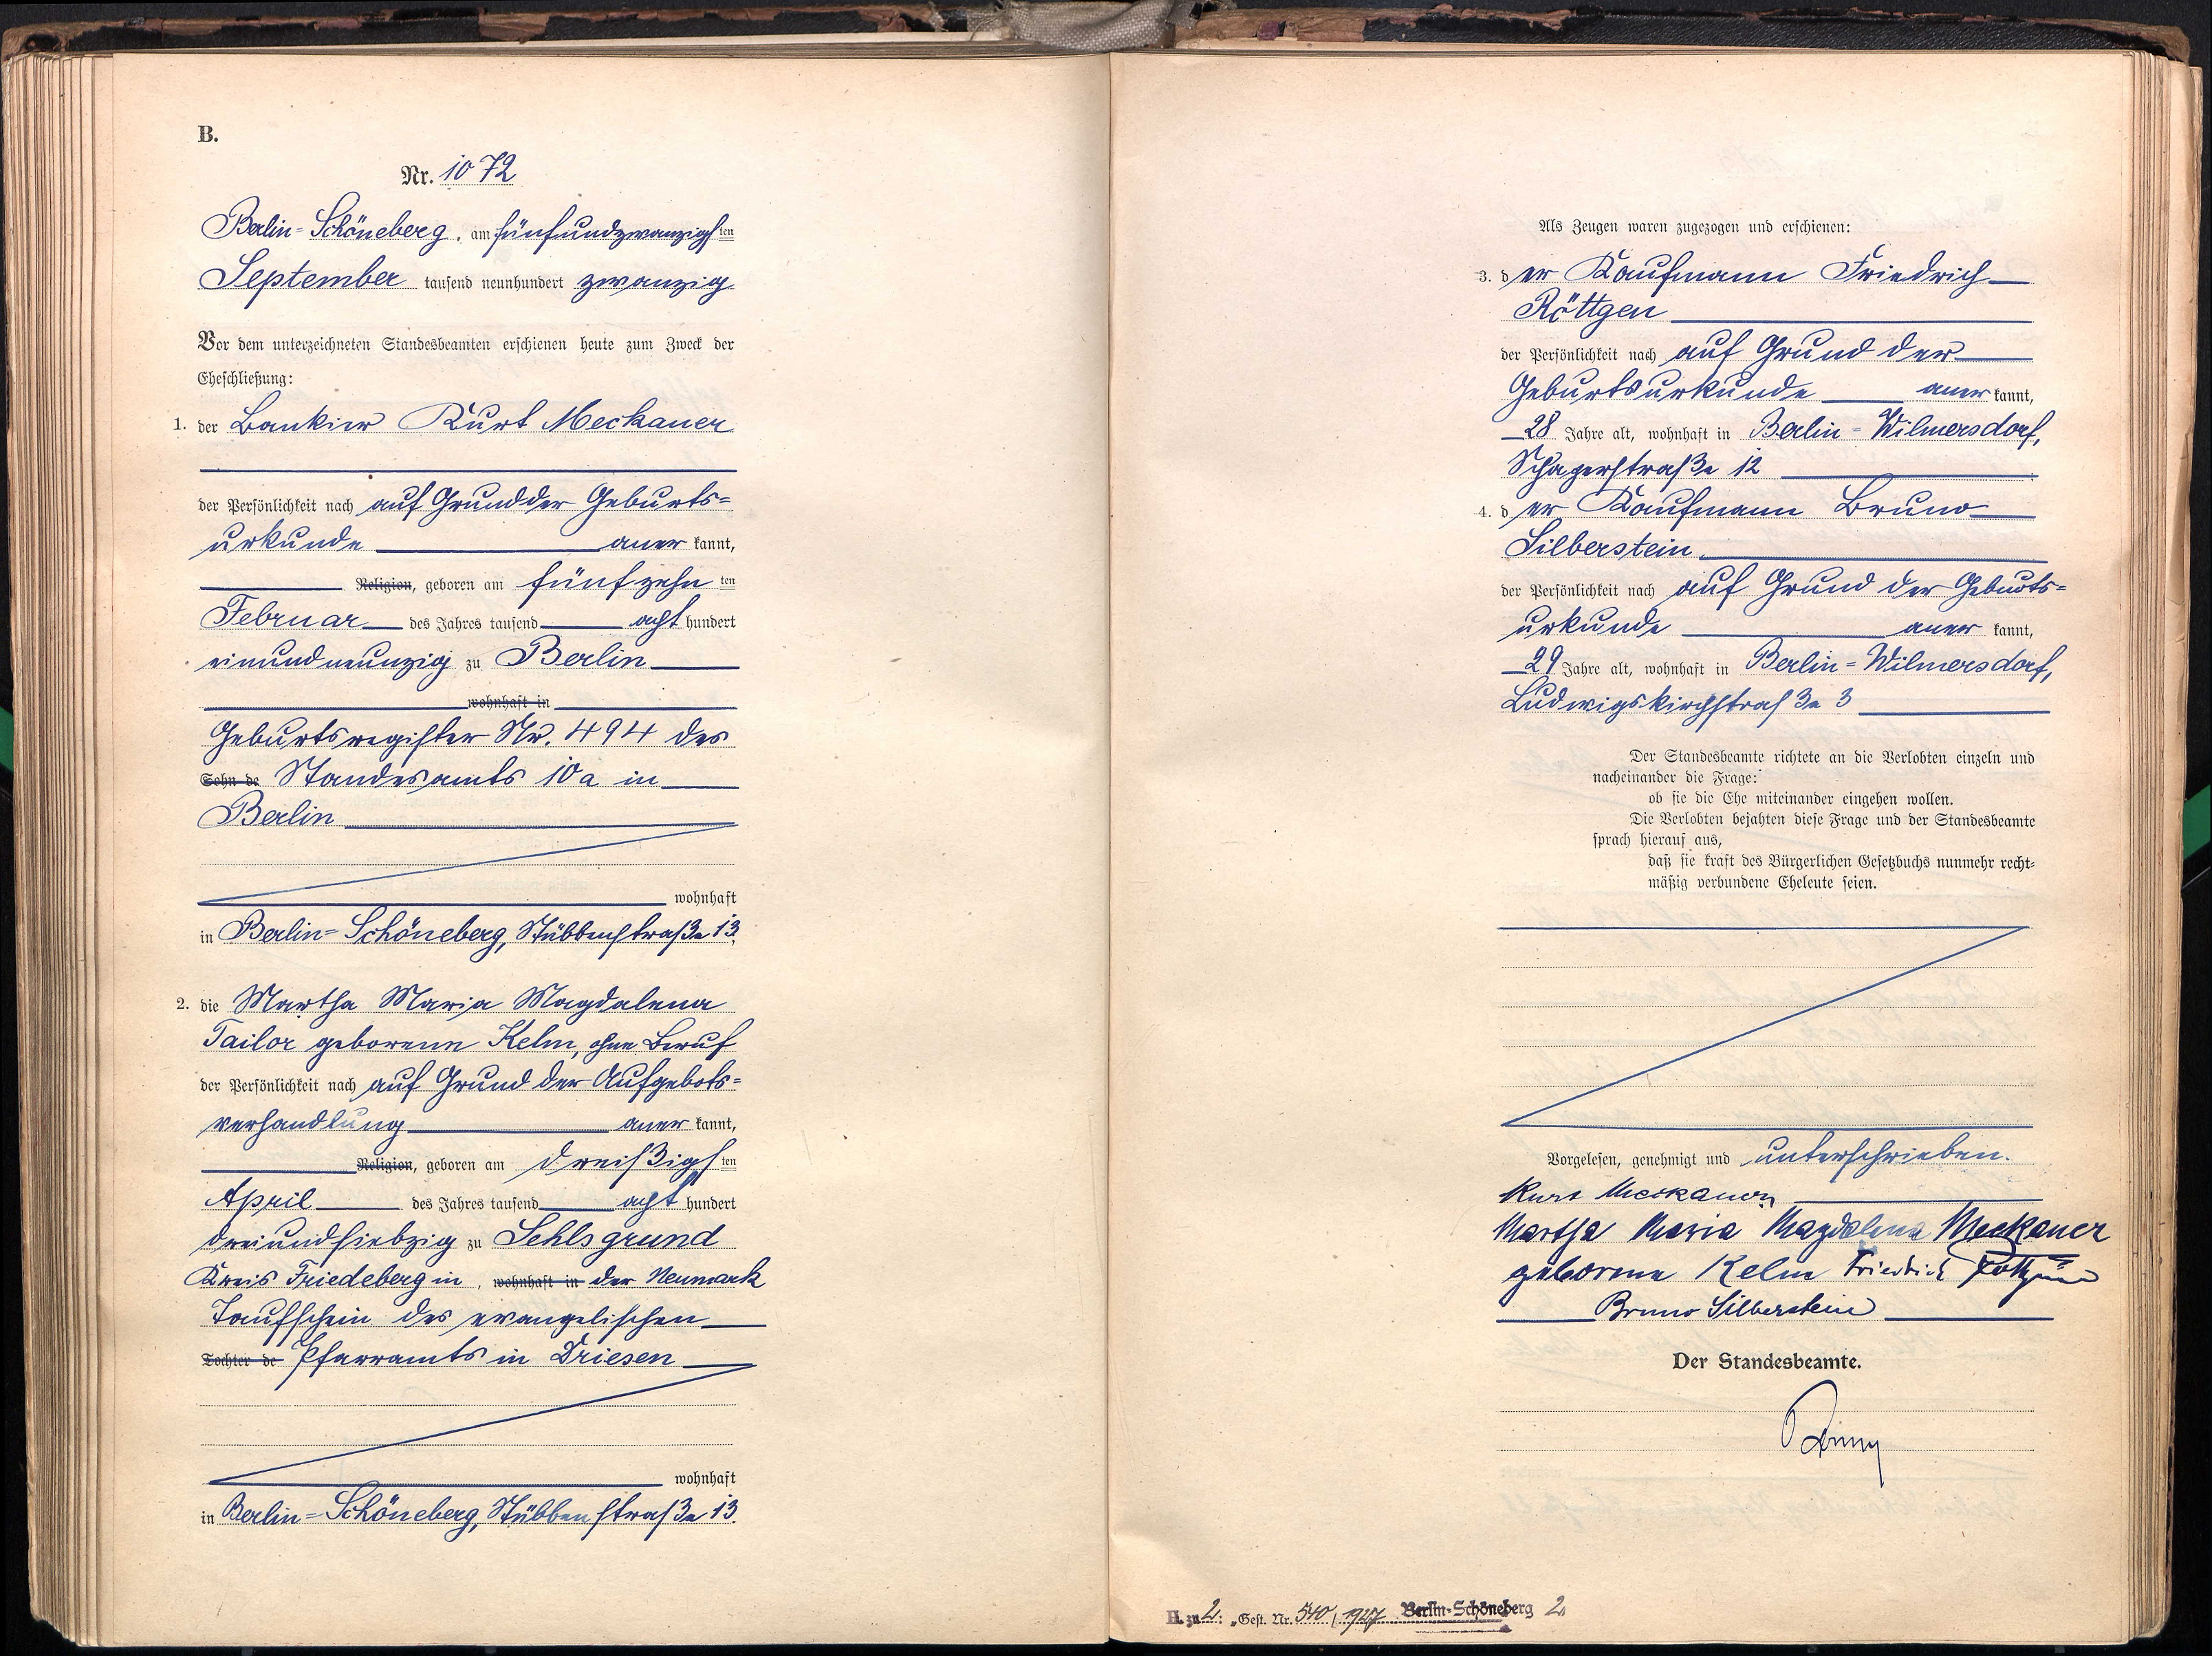 B.
Nr. 1072
Berlin-Schöneberg, am fünfundzwanzigsten
September tausend neunhundert zwanzig
Vor dem unterzeichneten Standesbeamten erschienen heute zum Zweck der
Eheschließung:
1. der Bankier Kurt Meckauer
der Persönlichkeit nach auf Grund der Geburts-
urkunde anerkannt,
Religion, geboren am fünfzehnten
Februar des Jahres tausend achthundert
einundneunzig zu Berlin
wohnhaft in
Geburtsregister Nr. 494 des
Sohn de Standesamts 10a in
Berlin
wohnhaft
in Berlin-Schöneberg, Stübbenstraße 13.
2. die Martha Maria Magdalena
Tailor geborene Kelm, ohne Beruf
der Persönlichkeit nach auf Grund der Aufgebots-
verhandlung anerkannt,
Religion, geboren am dreißigsten
April des Jahres tausend achthundert
dreiundsiebzig zu Sehlsgrund
Kreis Friedeberg in, wohnhaft in der Neumark
Taufschein des evangelischen
Tochter de Pfarramts in Driesen
wohnhaft
in Berlin-Schöneberg, Stübbenstraße 13.
Als Zeugen waren zugezogen und erschienen:
3. der Kaufmann Friedrich
Röttgen
der Persönlichkeit nach auf Grund der
Geburtsurkunde anerkannt,
28 Jahre alt, wohnhaft in Berlin-Wilmersdorf,
Schaperstraße 12
4. der Kaufmann Bruno
Silberstein
der Persönlichkeit nach auf Grund der Geburts-
urkunde anerkannt,
29 Jahre alt, wohnhaft in Berlin-Wilmersdorf,
Ludwigskirchstraße 3
Der Standesbeamte richtete an die Verlobten einzeln und
nacheinander die Frage:
ob sie die Ehe miteinander eingehen wollen.
Die Verlobten bejahten diese Frage und der Standesbeamte
sprach hierauf aus,
daß sie kraft des Bürgerlichen Gesetzbuchs nunmehr recht-
mäßig verbundene Eheleute seien.
Vorgelesen, genehmigt und unterschrieben.
Kurt Meckauer
Martha Maria Magdalena Meckauer
geborene Kelm Friedrich Röttgen
Bruno Silberstein
Der Standesbeamte.
H. zu 2: Gest. Nr. 540/1927 Berlin-Schöneberg 2